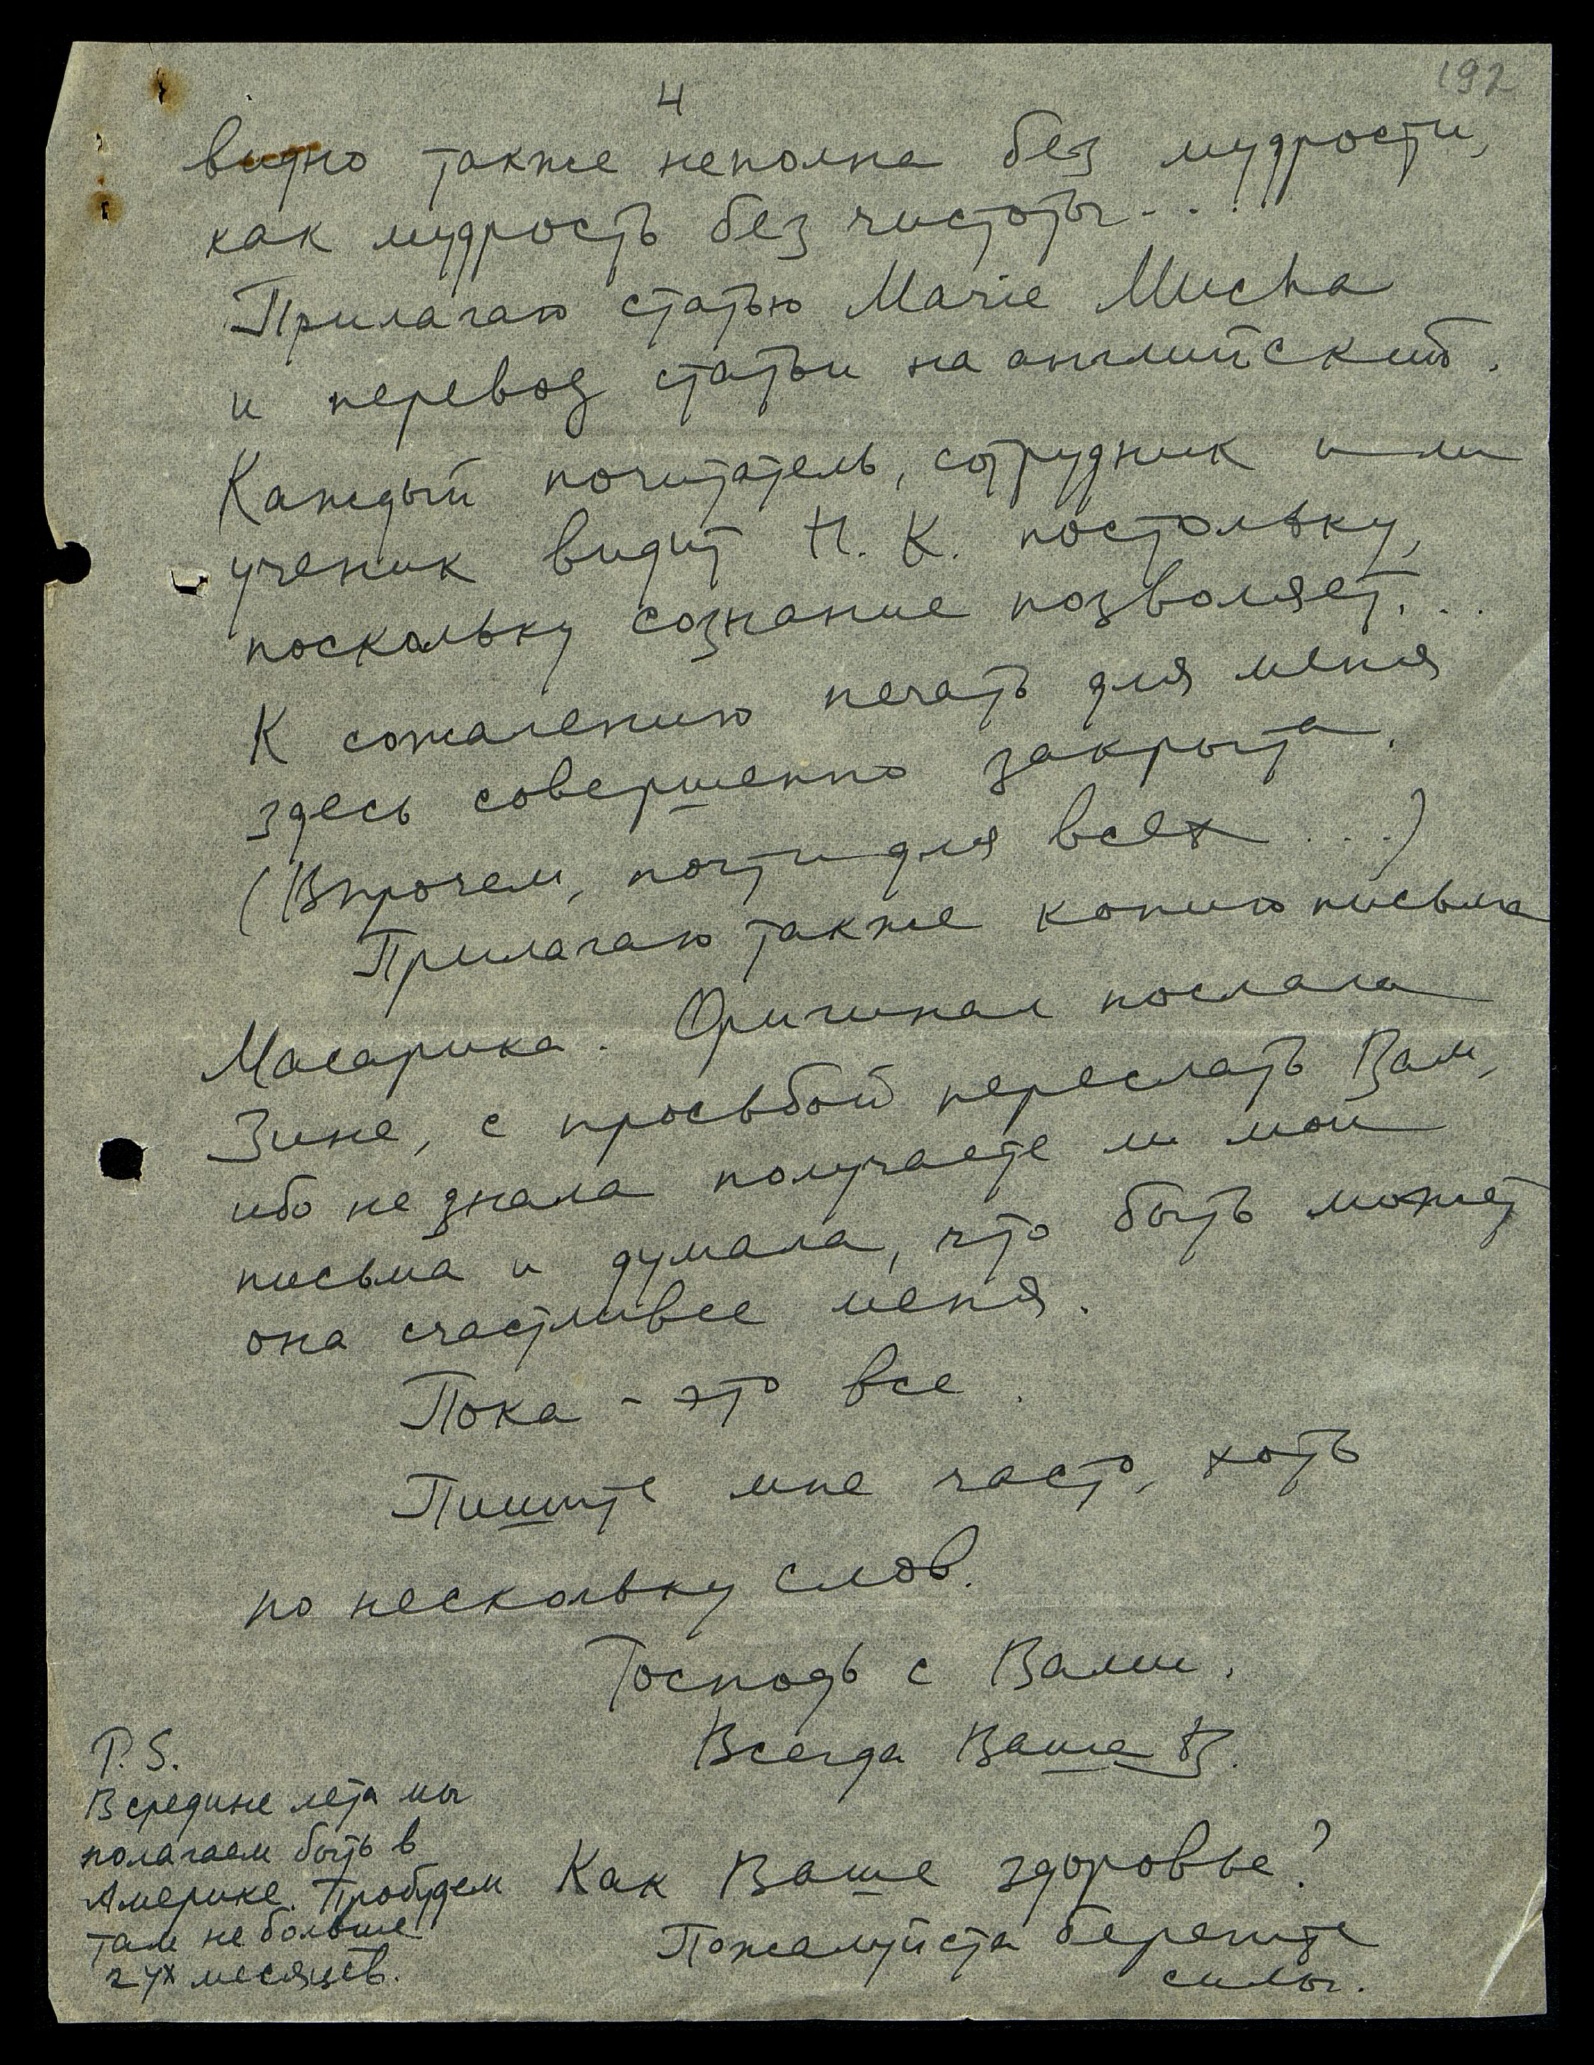 192
4
видно также неполна без мудрости,
как мудрость без чистоты...
Прилагаю статью Marie Mucha
и перевод статьи на английский.
Каждый почитатель, сотрудник или
ученик видит Н. К. постольку,
поскольку сознание позволяет...
К сожалению печать для меня
здесь совершенно закрыта.
(Впрочем, почти для всех ...)
Прилагаю также копию письма
Масарика. Оригинал послала
Зине, с просьбой переслать Вам,
ибо не знала получаете ли мои
письма и думала, что быть может
она счастливее меня.
Пока - это все.
Пишите мне часто, хоть
по нескольку слов.
Господь с Вами.
Всегда Ваша
P.S.
В средине лета мы
полагаем быть в
Америке. Пробудем
там не больше
2ух месяцев.
Как Ваше здоровье?
Пожалуйста берегите
силы.